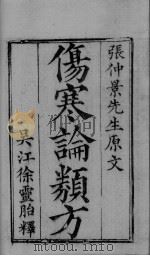 張仲景先生原文
傷寒論類方
吳江徐靈胎釋